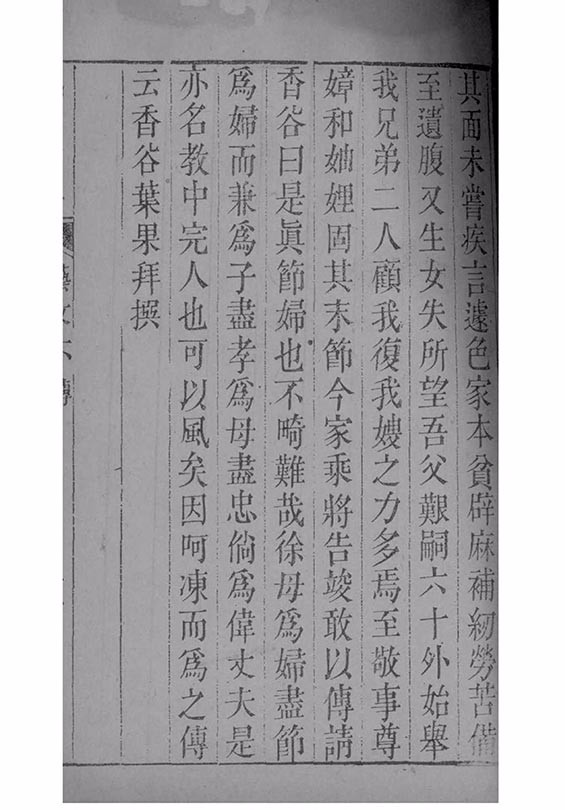 其面未嘗疾言遽色家本貧辟麻補紉勞苦備
至遺腹又生女失所望吾父艱嗣六十外始舉
我兄弟二人顧我復我嫂之力多焉至敬事尊
嫜和妯娌固其末節今家乘將告竣敢以傳請
香谷曰是眞節婦也不畸難哉徐母爲婦盡節
爲婦而兼爲子盡孝爲母盡忠倘爲偉丈夫是
亦名教中完人也可以風矣因呵凍而爲之傳
云香谷葉果拜撰
藝文六 傳